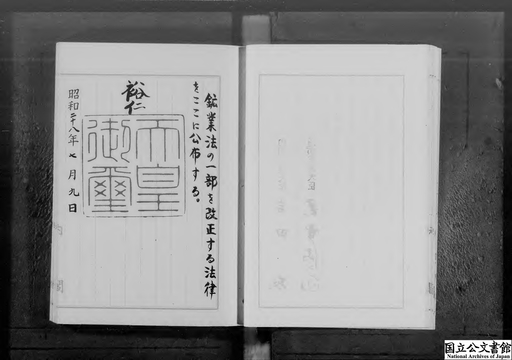 鉱業法の一部を改正する法律
をここに公布する。
裕仁
天皇
御璽
昭和二十八年七月九日
国立公文書館
National Archives of Japan